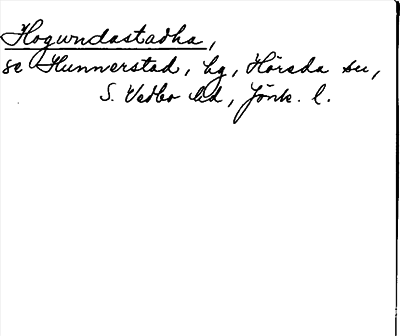 Hogwndastadha,
se Hunnerstad, bg, Höreda sn,
S. Vedbo hd, Jönk. l.